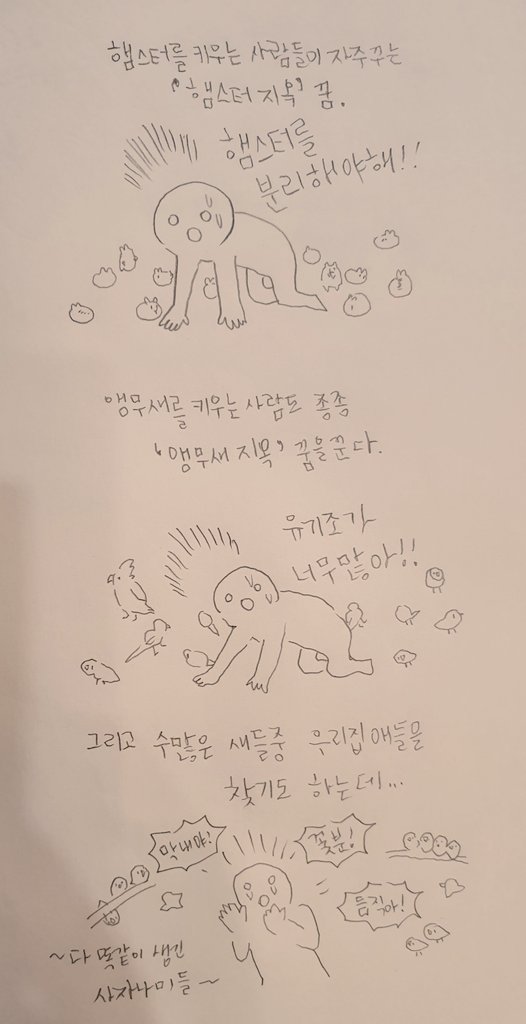 햄스터를 키우는 사람들이 자주꾸는
'햄스터 지옥' 꿈.
햄스터를
분리해야해!!
앵무새를 키우는 사람도 종종
'앵무새 지옥' 꿈을꾼다.
유기조가
너무많아!!
그리고 수많은 새들중 우리집 애들을
찾기도 하는데...
막내야!
꽃분!
틈직아!
~다 똑같이 생긴
사자나미들~